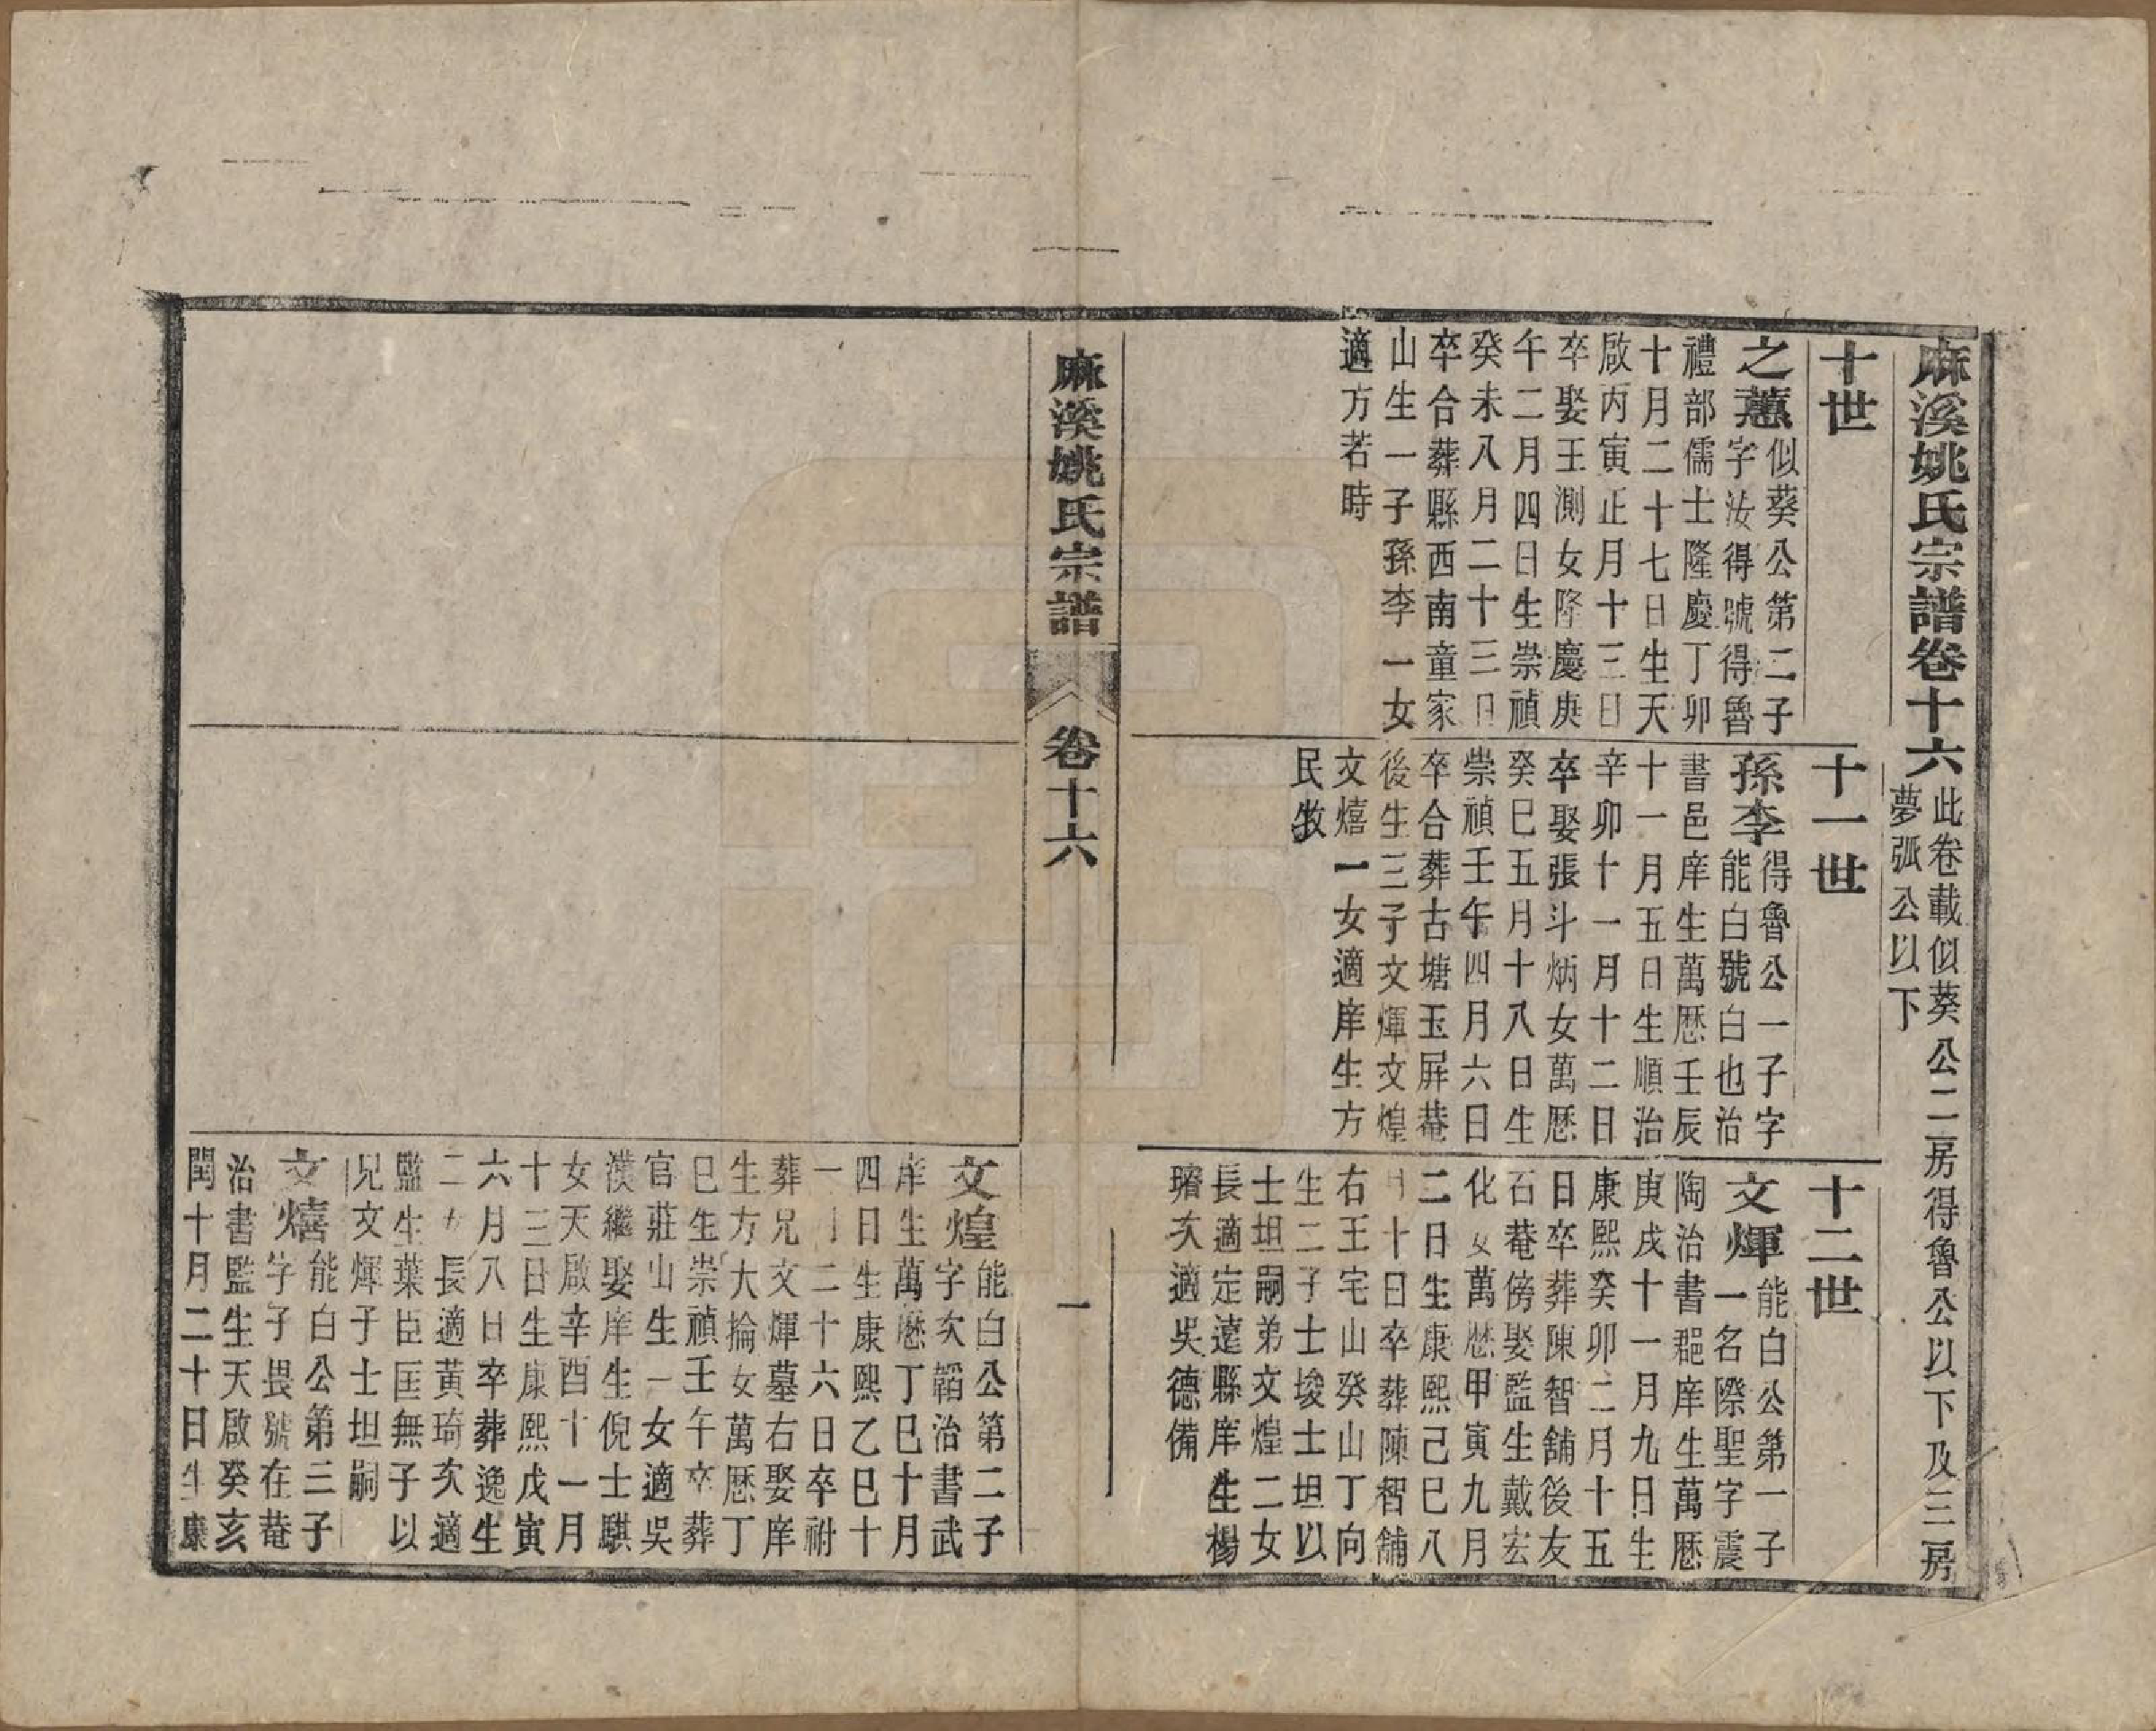 麻溪姚氏宗譜卷十六
此卷載似葵公二房得魯公以下及三房
夢弧公以下
十世
之蕙
似葵公第二子
字汝得號得魯
禮部儒士隆慶丁卯
十月二十七日生天
啟丙寅正月十三日
卒娶王測女隆慶庚
午二月四日生崇禎
癸未八月二十三日
卒合葬縣西南童家
山生一子孫李一女
適方若時
十一世
孫李
得魯公一子字
能白號白也治
書邑庠生萬歷壬辰
十一月五日生順治
辛卯十一月十二日
卒娶張斗炳女萬歷
癸巳五月十八日生
崇禎壬午四月六日
卒合葬古塘玉屏菴
後生三子文煇文煌
文熺一女適庠生方
民牧
十二世
文煇
能白公第一子
一名際聖字震
陶治書郡庠生萬歷
庚戌十一月九日生
康熙癸卯二月十五
日卒葬陳智舖後友
石菴傍娶監生戴宏
化女萬歷甲寅九月
二日生康熙己巳八
月十日卒葬陳智舖
右王宅山癸山丁向
生二子士埈士坦以
士坦嗣弟文煌二女
長適定遠縣庠生楊
㻞次適吳德備
麻溪姚氏宗譜
卷十六
一
文煌
能白公第二子
字次韜治書武
庠生萬歷丁巳十月
四日生康熙乙巳十
一月二十六日卒祔
葬兄文煇墓右娶庠
生方大掄女萬歷丁
巳生崇禎壬午卒葬
官莊山生一女適吳
濮繼娶庠生倪士騏
女天啟辛酉十一月
十三日生康熙戊寅
六月八日卒葬逸生
二女長適黃琦次適
監生葉臣匡無子以
兄文煇子士坦嗣
文熺
能白公第三子
字子畏號在菴
治書監生天啟癸亥
閏十月二十日生康